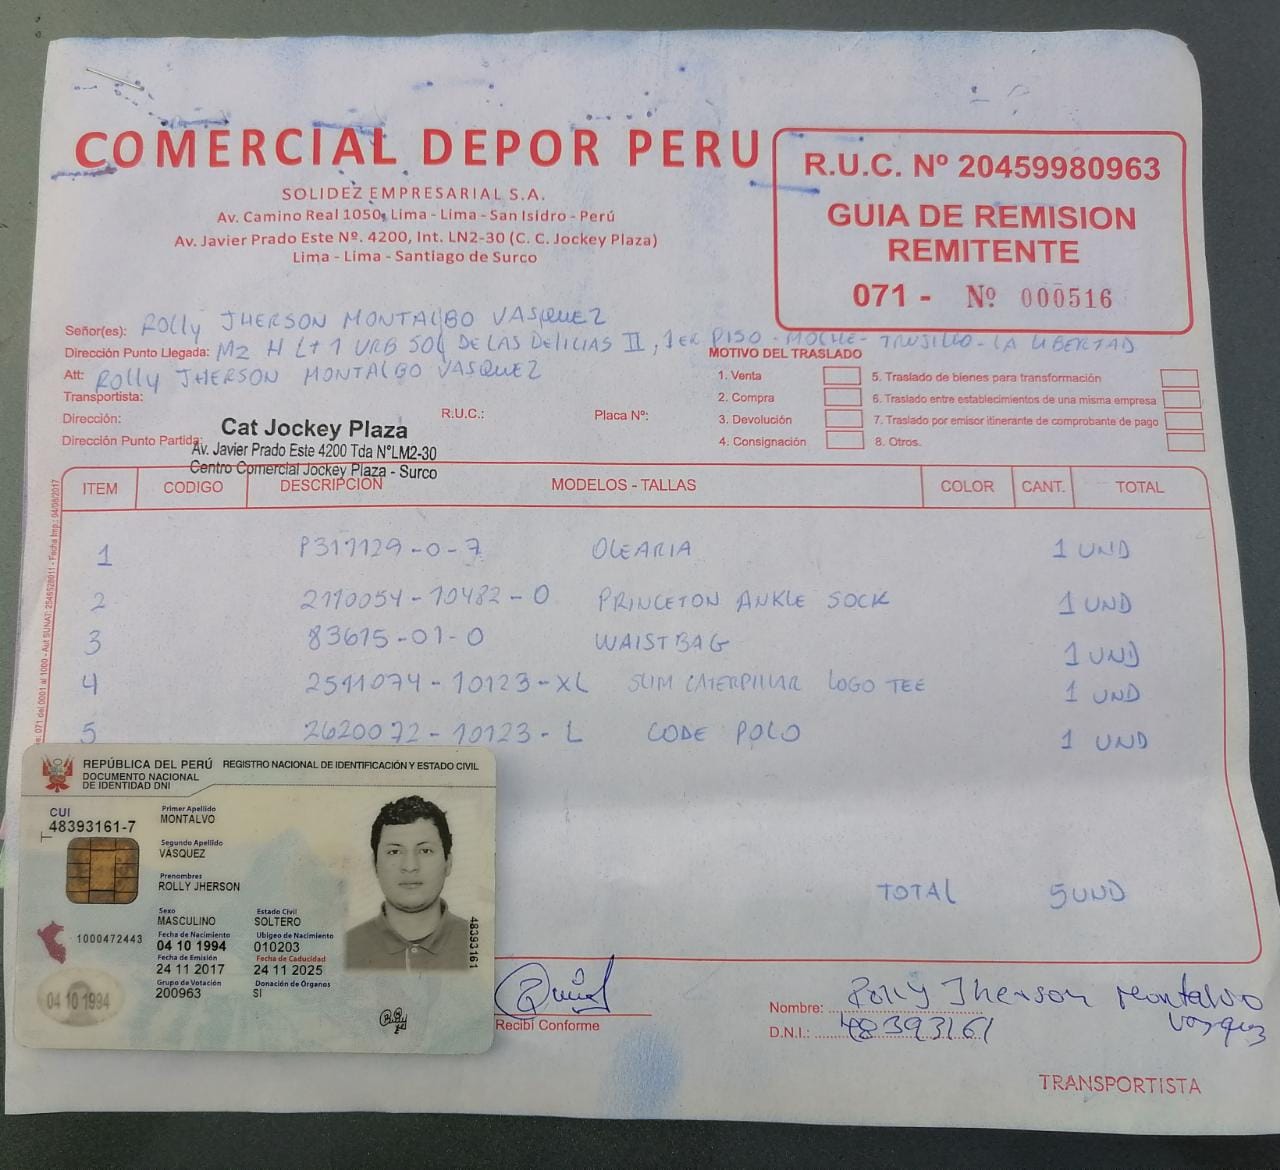 COMERCIAL DEPOR PERU
SOLIDEZ EMPRESARIAL S.A.
Av. Camino Real 1050, Lima - Lima - San Isidro - Perú
Av. Javier Prado Este Nº. 4200, Int. LN2-30 (C. C. Jockey Plaza)
Lima - Lima - Santiago de Surco
R.U.C. Nº 20459980963
GUIA DE REMISION
REMITENTE
071 - Nº 000516
Señor(es): ROLLY JHERSON MONTALBO VASQUEZ
Dirección Punto Llegada: MZ H LT 1 URB SOL DE LAS DELICIAS II, 1ER PISO - MOCHE - TRUJILLO - LA LIBERTAD
Att: ROLLY JHERSON MONTALBO VASQUEZ
Transportista:
Dirección: R.U.C.: Placa Nº:
Dirección Punto Partida:
Cat Jockey Plaza
Av. Javier Prado Este 4200 Tda N°LM2-30
Centro Comercial Jockey Plaza - Surco
MOTIVO DEL TRASLADO
1. Venta
2. Compra
3. Devolución
4. Consignación
5. Traslado de bienes para transformación
6. Traslado entre establecimientos de una misma empresa
7. Traslado por emisor itinerante de comprobante de pago
8. Otros.
ITEM CODIGO DESCRIPCIÓN MODELOS - TALLAS COLOR CANT. TOTAL
1 P317129-0-7 OLEARIA 1 UND
2 2110054-10482-0 PRINCETON ANKLE SOCK 1 UND
3 83615-01-0 WAISTBAG 1 UND
4 2511074-10123-XL SLIM CATERPILLAR LOGO TEE 1 UND
5 2620072-10123-L CODE POLO 1 UND
TOTAL 5 UND
071 del 0001 al 1000 - Aut SUNAT: - Fecha Imp.: 04/08/2017
REPÚBLICA DEL PERÚ REGISTRO NACIONAL DE IDENTIFICACIÓN Y ESTADO CIVIL
DOCUMENTO NACIONAL
DE IDENTIDAD DNI
CUI
48393161-7
Primer Apellido
MONTALVO
Segundo Apellido
VASQUEZ
Prenombres
ROLLY JHERSON
Sexo Estado Civil
MASCULINO SOLTERO
Fecha de Nacimiento Ubigeo de Nacimiento
04 10 1994 010203
Fecha de Emisión Fecha de Caducidad
24 11 2017 24 11 2025
Grupo de Votación Donación de Órganos
200963 SI
1000472443
04 10 1994
48393161
Recibí Conforme
Nombre: Rolly Jherson Montalvo
Vasquez
D.N.I.: 48393161
TRANSPORTISTA